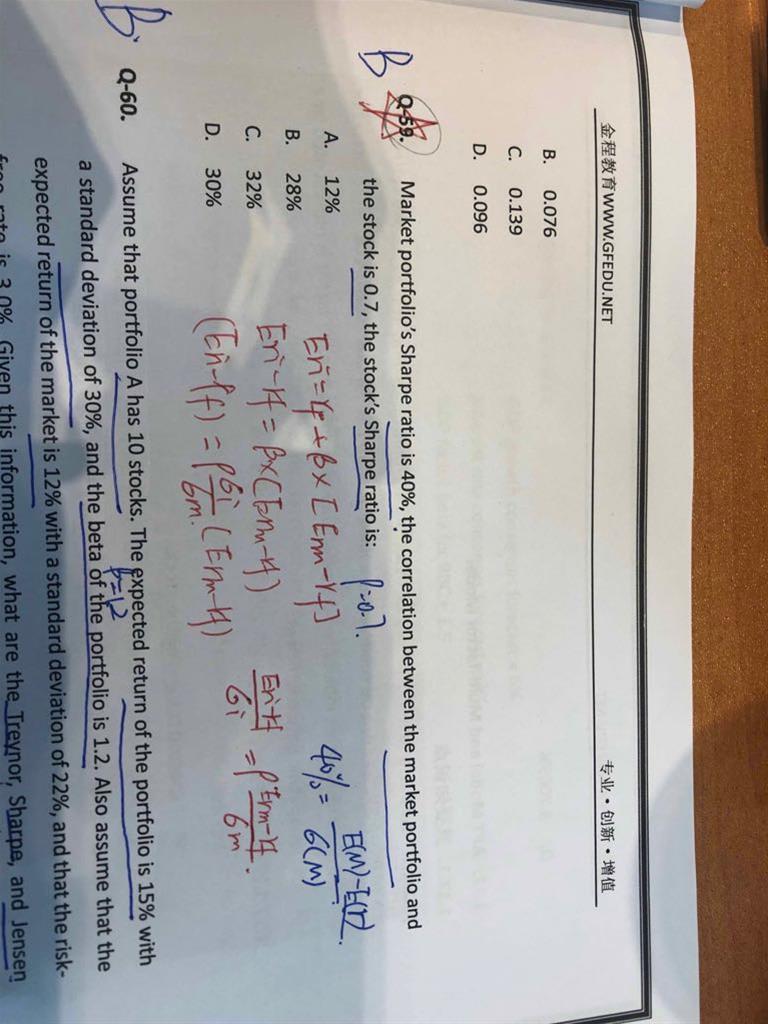 金程教育 WWW.GFEDU.NET 专业·创新·增值
B. 0.076
C. 0.139
D. 0.096
B Q-59. Market portfolio's Sharpe ratio is 40%, the correlation between the market portfolio and
the stock is 0.7, the stock's Sharpe ratio is: ρ=0.7.
A. 12%
B. 28%
C. 32%
D. 30%
Eri = rf + β×[Erm-rf]
Eri-rf = β×(Erm-rf)
(Eri-rf) = ρ σi/σm (Erm-rf)
40% = E(M)-E(r) / σ(M)
Eri-rf / σi = ρ Erm-rf / σm.
B
Q-60. Assume that portfolio A has 10 stocks. The expected return of the portfolio is 15% with
β=1.2
a standard deviation of 30%, and the beta of the portfolio is 1.2. Also assume that the
expected return of the market is 12% with a standard deviation of 22%, and that the risk-
free rate is 3.0%. Given this information, what are the Treynor, Sharpe, and Jensen